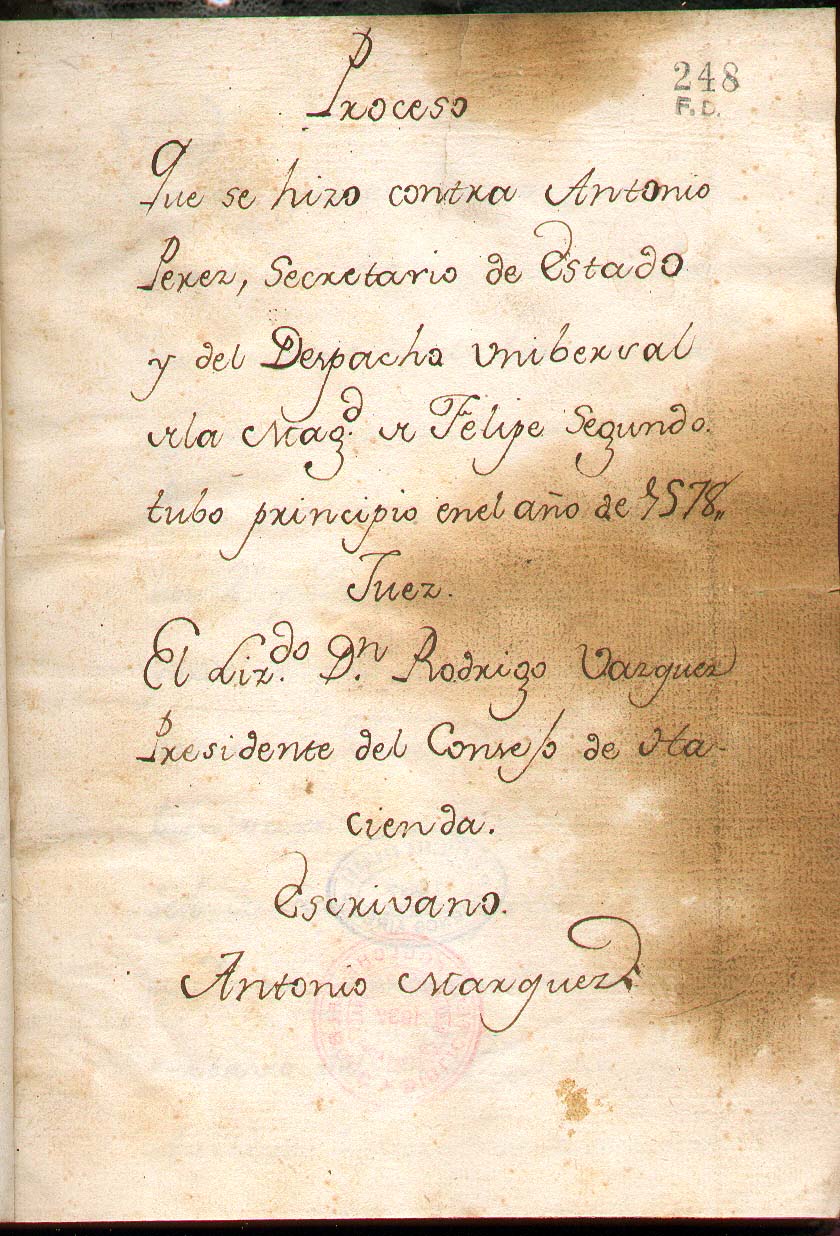 248
F.D.
Proceso
Que se hizo contra Antonio
Perez, Secretario de Estado
y del Despacho Unibersal
de la Mag.d de Felipe Segundo.
tubo principio en el año de 1578,,
Juez.
El Liz.do D.n Rodrigo Vazquez
Presidente del Consejo de Ha-
cienda.
Escrivano.
Antonio Marquez.